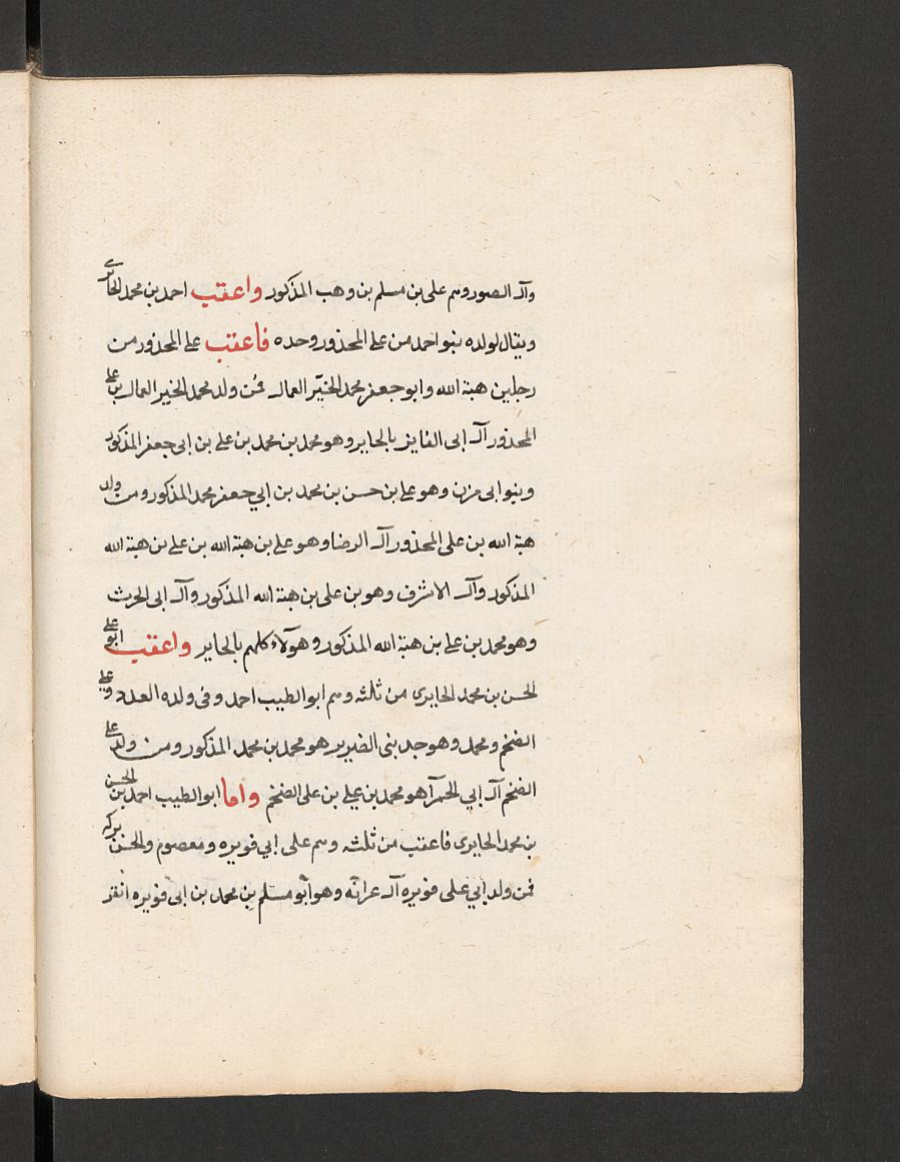 وآل الصور وهم على بن مسلم بن وهب المذكور واعقب احمد بن محمد الحائرى
ويقال لولده بنو احمد من على المجذور وحده فاعقب على المجذور من
رجلين هبة الله وابو جعفر محمد الخيّر العمال فمن ولد محمد الخير العمال بن على
المجذور آل ابى الفايز بالحاير وهو محمد بن محمد بن على بن ابى جعفر المذكور
وبنو ابى مزن وهو على بن حسن بن محمد بن ابي جعفر محمد المذكور ومن ولد
هبة الله بن على المجذور آل الرضا وهو على بن هبة الله بن على بن هبة الله
المذكور وآل الاشرف وهو بن على بن هبة الله المذكور وآل ابى الحرث
وهو محمد بن على بن هبة الله المذكور وهولآء كلهم بالحاير واعقب ابو على
الحسن بن محمد الحايرى من ثلثه وهم ابو الطيب احمد وفى ولده العدد وعلى
الضخم ومحمد وهو جد بنى الضرير هو محمد بن محمد المذكور ومن ولد على
الضخم آل ابي الحمرآ هو محمد بن على بن على الضخم واما ابو الطيب احمد بن الحسن
بن محمد الحايرى فاعقب من ثلثه وهم على ابي فويره ومعصوم والحسن بركه
فمن ولد ابي على فويره آل عرانه وهو ابو مسلم بن محمد بن ابى فويره انقر